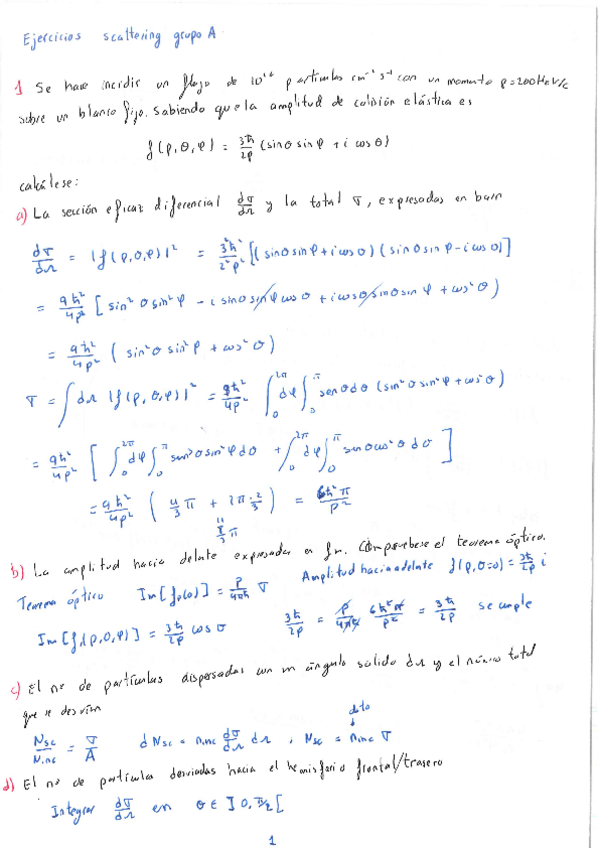 Ejercicios scattering grupo A
1 Se hace incidir un flujo de 10¹⁶ partículas cm⁻² s⁻¹ con un momento p=200MeV/c
sobre un blanco fijo. Sabiendo que la amplitud de colisión elástica es
f(p,θ,φ) = 3ħ/2p (sinθ sinφ + i cosθ)
calcúlese:
a) La sección eficaz diferencial dσ/dΩ y la total σ, expresadas en barn
dσ/dΩ = |f(p,θ,φ)|² = 3²ħ²/2²p² [(sinθ sinφ + i cosθ)(sinθ sinφ - i cosθ)]
= 9ħ²/4p² [sin²θ sin²φ - i sinθ sinφ cosθ + i cosθ sinθ sinφ + cos²θ)
= 9ħ²/4p² (sin²θ sin²φ + cos²θ)
σ = ∫dΩ |f(p,θ,φ)|² = 9ħ²/4p² ∫₀^2π dφ ∫₀^π senθdθ (sin²θ sin²φ + cos²θ)
= 9ħ²/4p² [∫₀^2π dφ ∫₀^π sen³θ sin²φ dθ + ∫₀^2π dφ ∫₀^π senθ cos²θ dθ]
= 9ħ²/4p² (4/3 π + 2π·2/3) = 6ħ²π/p²
b) La amplitud hacia delante expresada en fm. Compruébese el teorema óptico.
Teorema óptico Im[f_p(0)] = p/4πħ σ Amplitud hacia adelante f(p,θ=0) = 3ħ/2p i
Im[f(p,θ,φ)] = 3ħ/2p cosθ 3ħ/2p = p/4πħ 6ħ²π/p² = 3ħ/2p se cumple
c) El nº de partículas dispersadas con un ángulo sólido dΩ y el número total
que se desvían dato
Nsc/Ninc = σ/A dNsc = ninc dσ/dΩ dΩ ; Nsc = ninc σ
d) El nº de partícula desviadas hacia el hemisferio frontal/trasero
Integrar dσ/dΩ en θ ∈ ]0, π/2[
1